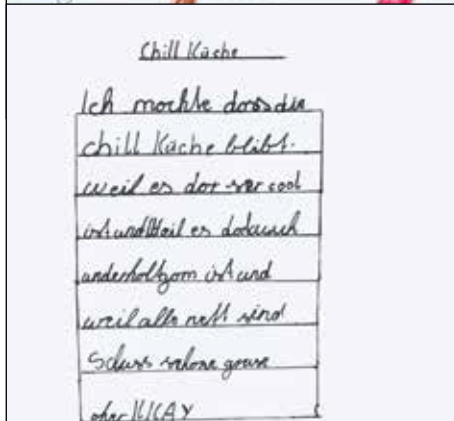 Chill Küche
Ich mochte dass die
chill Küche blibt.
weil es dort ser cool
ist und Weil es dort auch
underholtzom ist und
weil alle nett sind
Schuss schone gruse